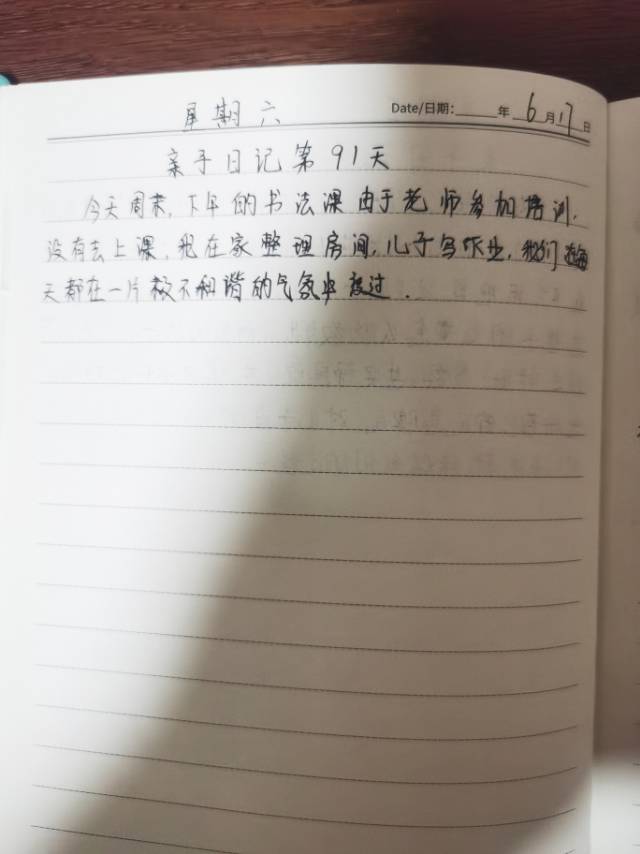 星期六 Date/日期: 年 6月17日
亲子日记第91天
今天周末,下午的书法课由于老师参加培训.
没有去上课,我在家整理房间,儿子写作业,我们
天都在一片 不和谐的气氛中度过.